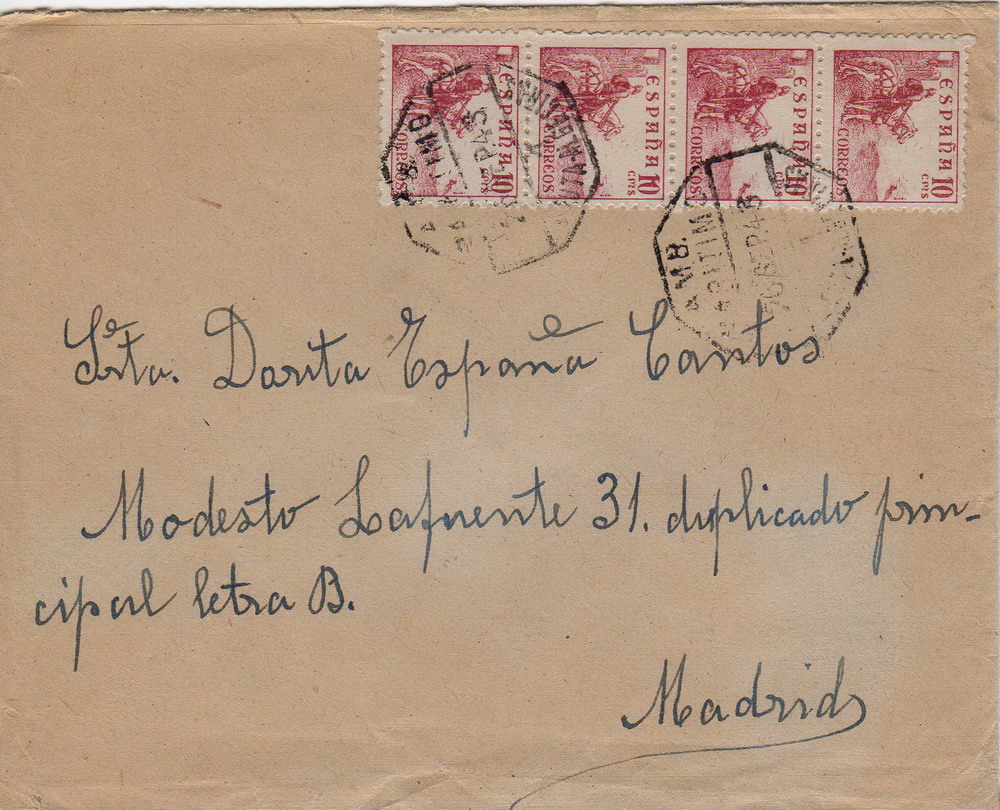 ESPAÑA CORREOS 10 CTVS
ESPAÑA CORREOS 10 CTVS
ESPAÑA CORREOS 10 CTVS
ESPAÑA CORREOS 10 CTVS
AMB.
SEP 43
AMB.
Srta. Dorita España Cantos
Modesto Lafuente 31. duplicado prin-
cipal letra B.
Madrid